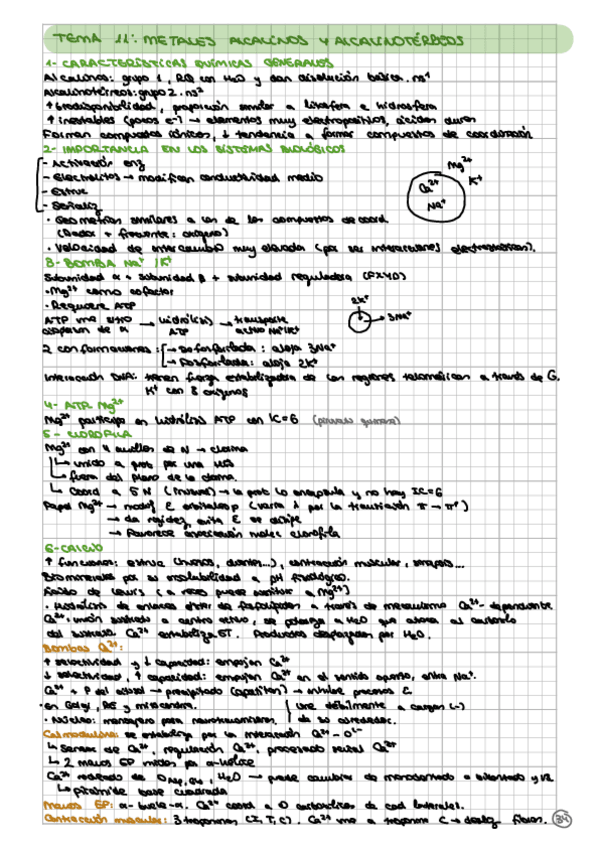 TEMA 11: METALES ALCALINOS Y ALCALINOTÉRREOS
1- CARACTERÍSTICAS QUÍMICAS GENERALES
Alcalinos: grupo 1, RQ con H2O y dan disolución básica. ns1
Alcalinotérreos: grupo 2. ns2
↑ biodisponibilidad, proporción similar a litosfera e hidrosfera
↑ inestables (pocos e-) → elementos muy electropositivos, ácidos duros
Forman compuestos iónicos, ↓ tendencia a formar compuestos de coordinación
2- IMPORTANCIA EN LOS SISTEMAS BIOLÓGICOS
- Activación enz
- Electrolitos → modifican conductividad medio
- Estruc
- Señaliz
Mg2+
Ca2+
K+
Na+
· Geometrías similares a las de los compuestos de coord
(Dador + frecuente: oxígeno)
· Velocidad de intercambio muy elevada (por ser interacciones electrostáticas).
3- BOMBA Na+/K+
Subunidad α + subunidad β + subunidad reguladora (FXYD)
· Mg2+ como cofactor
· Requiere ATP
ATP une sitio → hidrólisis → transporte
citoplasm de α ATP activo Na+/K+
2K+
→ 3Na+
2 conformaciones: → Desfosforilada: aloja 3Na+
→ Fosforilada: aloja 2K+
Interacción DNA: tienen fuerza estabilizadora de las regiones teloméricas a través de G.
K+ con 8 oxígenos
4- ATP Mg2+
Mg2+ participa en hidrólisis ATP con IC=6
5- CLOROFILA
Mg2+ con 4 anillos de N → clorina
↳ unido a prot por una His
↳ fuera del plano de la clorina
↳ Coord a 5 N → la prot lo encapsula y no hay IC=6
Papel Mg2+ → modif E orbitales p (varía λ por la transición π → π*)
→ da rigidez, evita E se disipe
→ Favorece asociación molec clorofila
6- CALCIO
↑ funciones: estruc (huesos, dientes...), contracción muscular, sinapsis...
Biominerales por su insolubilidad a pH fisiológico.
Ácido de Lewis (a veces puede sustituir a Mg2+)
· Hidrólisis de enlaces éster de fosfolípidos a través de mecanismo Ca2+- dependiente
Ca2+: unión sustrato a centro activo, se polariza a H2O que ataca al carbonilo
del sustrato. Ca2+ estabiliza ET. Productos desplazados por H2O.
Bombas Ca2+:
↑ selectividad y ↓ capacidad: empujan Ca2+
↓ selectividad, ↑ capacidad: empujan Ca2+ en el sentido opuesto, entra Na+.
Ca2+ + P del citosol → precipitado (apatitos) → inhibe procesos E
· En Golgi, RE y mitocondria. Une débilmente a cargas (-)
· Núcleo: mensajero para neurotransmisión. de su alrededor.
Calmodulina: se estabiliza por la interacción Ca2+ - O2-
↳ Sensor de Ca2+, regulación Ca2+, procesado señal Ca2+
↳ 2 manos EF unidas por α-hélice
Ca2+ rodeado de OAsp, Glu, H2O → puede cambiar de monodentado a bidentado y v/2
↳ pirámide base cuadrada
Manos EF: α-bucle-α. Ca2+ coord a O carboxílicos de cad laterales.
Contracción muscular: 3 troponinas (I, T, C). Ca2+ une a troponina C → desliz fibras.
34